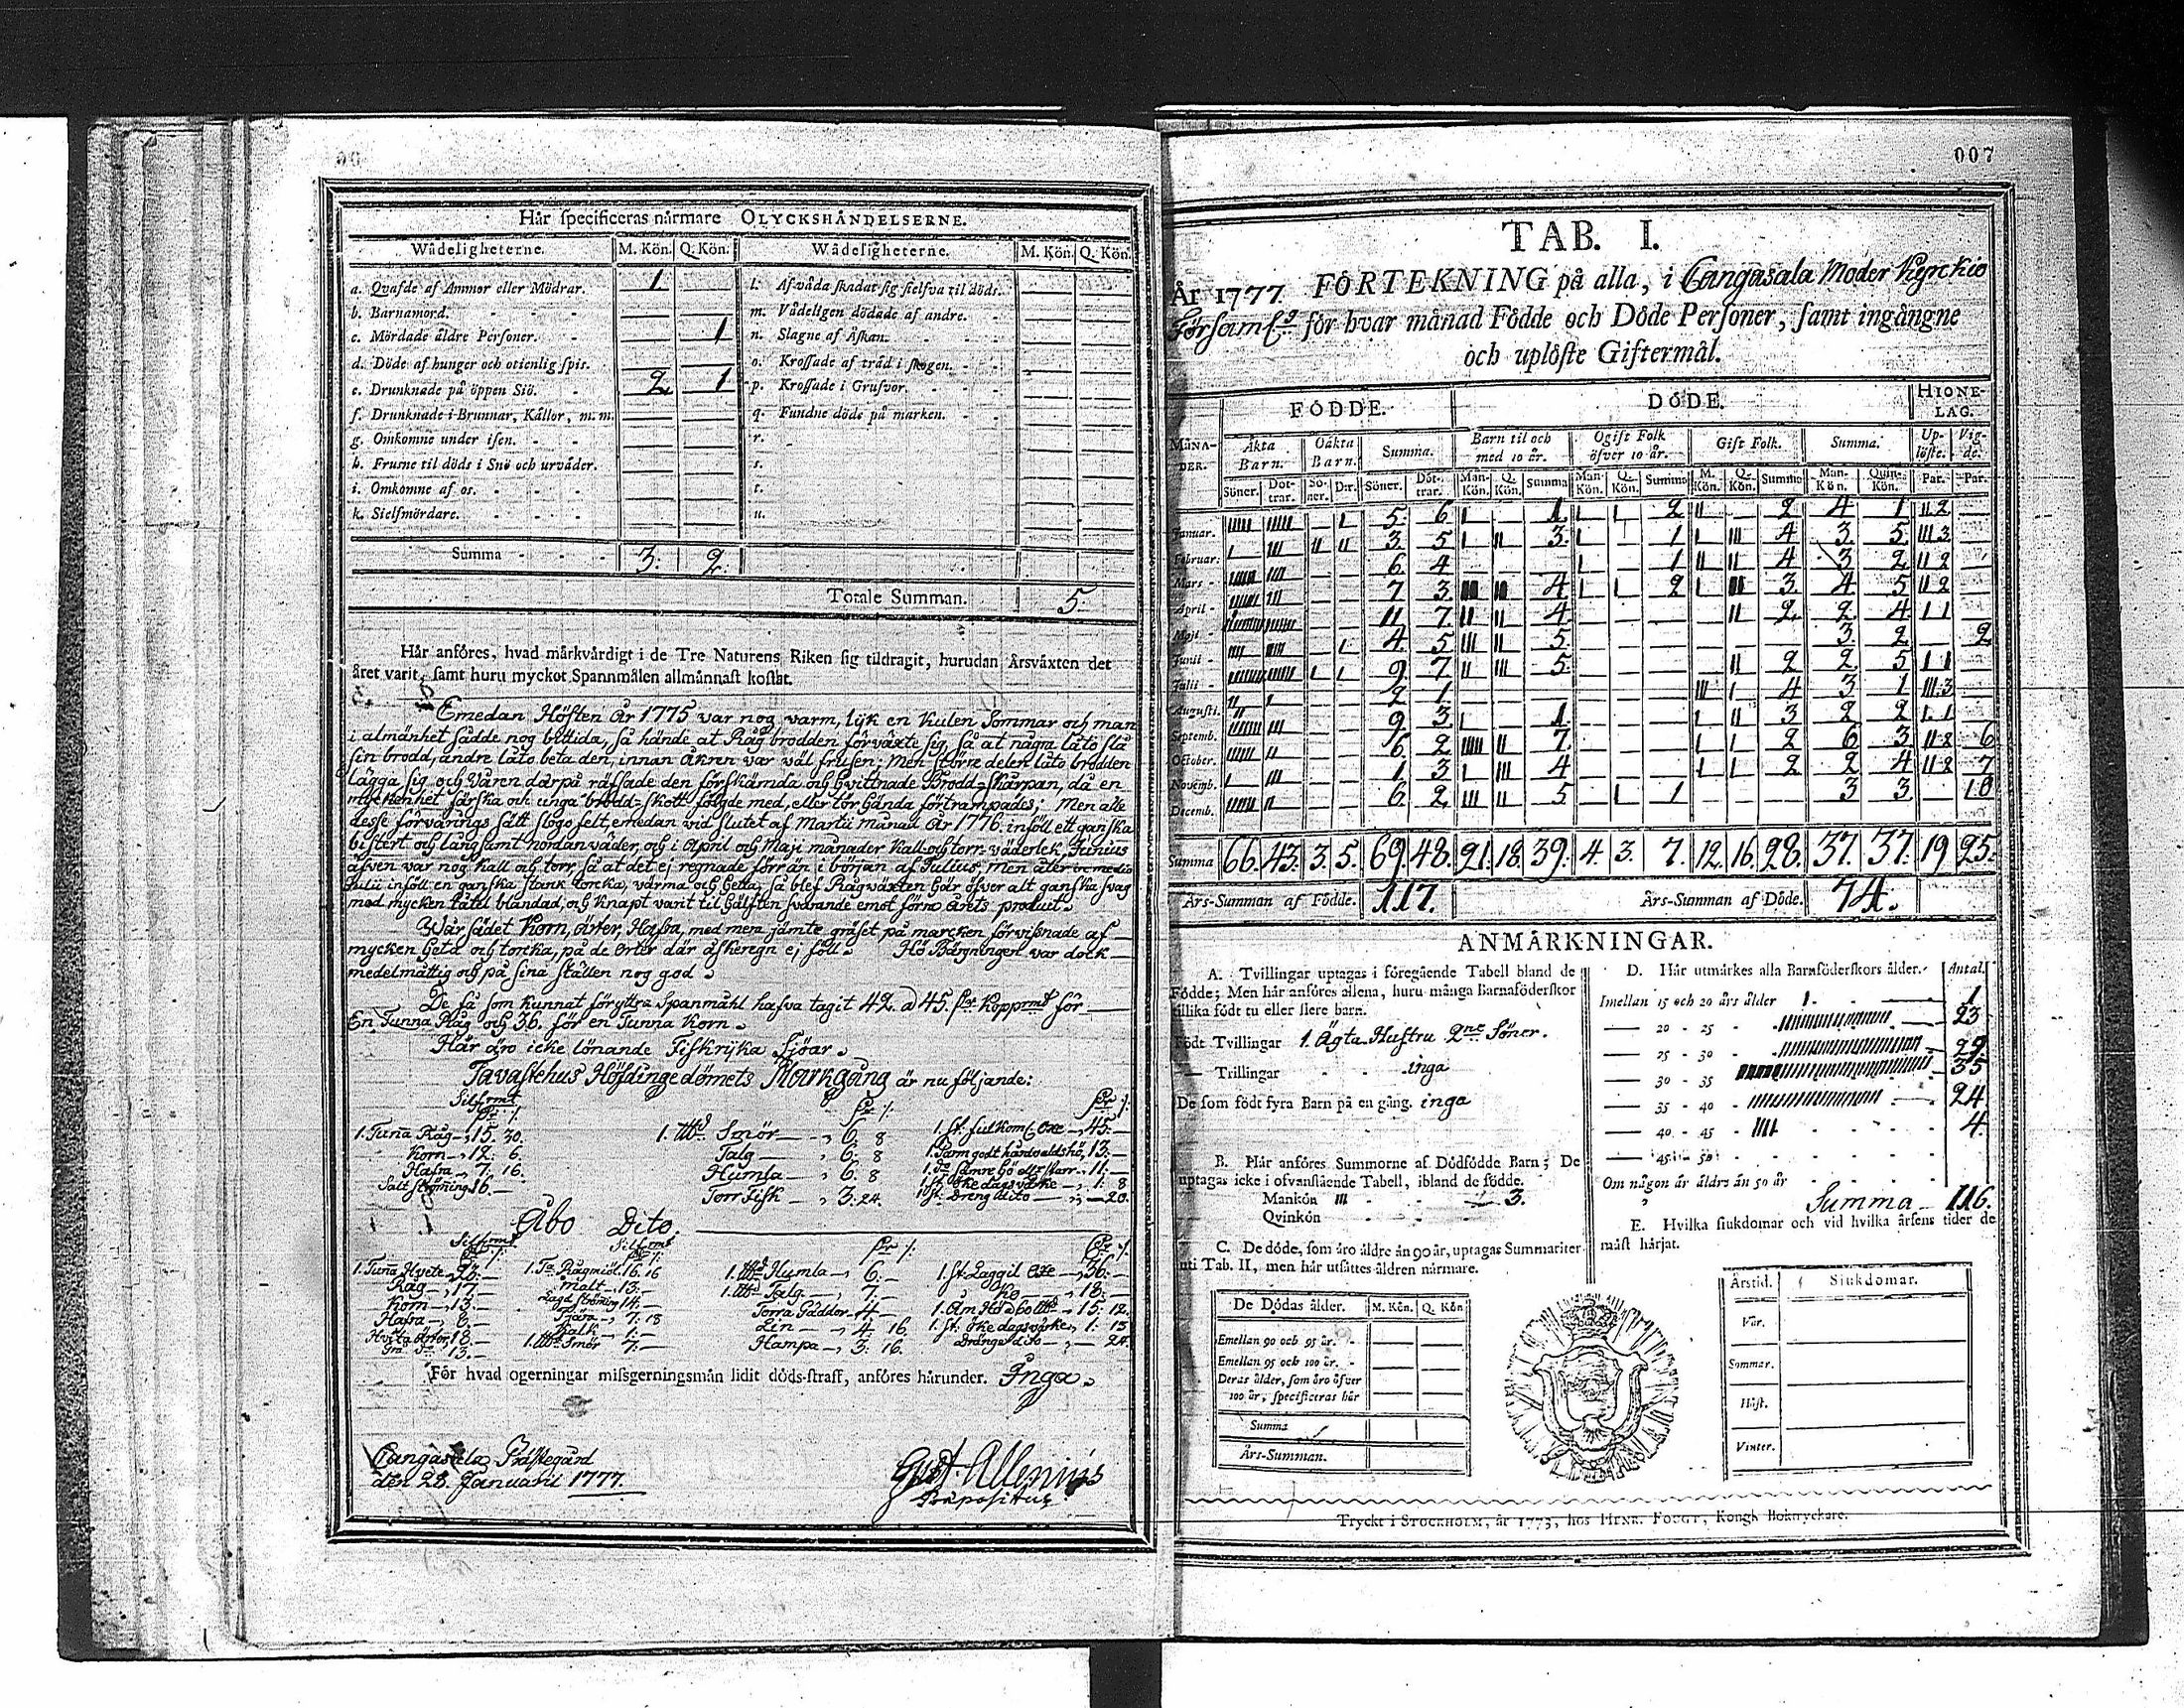 Här ſpecificeras nårmare OLYCKSHÄNDELSERNE.
Wådeligheterne. M. Kön. Q. Kön. Wådeligheterne. M. Kön. Q. Kön.
a. Qvafde af Ammor eller Mödrar. 1 l. Af våda ſkadat ſig ſielfva til döds.
b. Barnamord. m. Vådeligen dödade af andre.
c. Mördade åldre Perſoner. 1 n. Slagne af Åſkan.
d. Döde af hunger och otienlig ſpis. o. Kroſſade af träd i ſkogen.
e. Drunknade på öppen Siö. 2 1 p. Kroſſade i Grufvor.
f. Drunknade i Brunnar, Kållor, m.m. q. Fundne döde på marken.
g. Omkomne under iſen. r.
h. Fruſne til döds i Snö och urväder. s.
i. Omkomne af os. t.
k. Sielfmördare. u.
Summa 3. 2.
Totale Summan. 5.
Hår anföres, hvad mårkvårdigt i de Tre Naturens Riken ſig tildragit, hurudan Årsväxten det
året varit, ſamt huru myckot Spannmålen allmånnaſt koſtat.
Emedan Höſten År 1775 var nog varm, lijk en Kulen Sommar och man
i almänhet ſådde nog bittida, ſå hände at Råg brodden förväxte ſig, ſå at några läto ſlå
ſin brodd, andre läto beta den, innan åkren var väl fruſen; Men ſtörre delen läto brodden
lägga ſig, och Våren därpå räfſade den förſkämda och hvittnade Brodd-ſkärpan, då en
myckenhet färſka och unga brodd-ſkott fölgde med, eller förtrampades; Men alle
deſse förvarings ſätt ſlogo felt emedan vid ſlutet af Martii månad År 1776 inföll ett ganſka
biſtert och långſamt nordanväder, och i April och Maji månader Kall och torr väderlek, Junius
äfven var nog Kall och torr, ſå at det ej regnade förr än i början af Julius, men
Julii inföll en ganſka ſtark torcka, värma och hetta, ſå blef Rågväxten här öfver alt ganſka ſvag
med mycken blandad, och knapt varit til hälften ſvarande emot förra Årets product.
Vår ſädet Korn, ärter, Hafra, med mera jämte gräſet på marcken förviſsnade af
mycken heta och torcka, på de orter där åſkeregn ej föll. Hö Bärgningen var dock
medelmåttig och på ſina ſtällen nog god.
De få ſom kunnat föryttra Spanmåhl hafva tagit 42. a 45. för
En Tunna Råg och 36. för en Tunna Korn.
Här äro icke lönande Fiſkrijka Sjöar.
Tavaſtehus Höfdingedömets Markgång är nu följande:
1. Tuna Råg 15. 30. 1. Smör 6. 8 1. ſt. fulkoml. oxe 45.
Korn 12. 6. Talg 6. 8 1. Parm godt hårdvaldshö, 13.
Hafra 7. 16. Humla 6. 8 ſämre hö 11.
Salt ſtrömming 16. Torr Fiſk 3. 24. 1. ſt. öke dagsvärke 1. 8
1 ſt. Dreng dito 20.
Åbo Dito.
1. Tuna Hvete 23. 1. Rågmiöl 16. 16 1. Humla 6. 1. ſt. Laggil Oxe 36.
Råg 17. Malt 13. 1. Talg 7. Ko 18.
Korn 13. Torra Gäddor 4. 15. 12.
Hafra 8. Tjära 7. 18 Lin 4. 16. 1. ſt. öke dagsvärke 1. 15
Hvita Ärter 18. Kalk 1. Hampa 3. 16. Drängs dito 24.
13. 1. Smör 7.
För hvad ogerningar miſsgerningsmån lidit döds-ſtraff, anföres hårunder. Inga.
Cangasala Präſtegård
den 28. Januarii 1777.
Guſt. Allenius
Præpoſitus
007
TAB. I.
År 1777 FÖRTEKNING på alla, i Cangasala Moder Kyrckio
Förſaml. för hvar månad Födde och Döde Perſoner, ſamt ingångne
och uplöſte Giftermål.
FÖDDE. DÖDE. HIONE-LAG.
MÅNA-DER. Äkta Barn. Oåkta Barn. Summa. Barn til och med 10 år. Ogift Folk öfver 10 år. Gift Folk. Summa. Up-löſte. Vig-de.
Söner. Döt-trar. Sö-ner. D:r. Söner. Döt-trar. Man-Kön. Q. Kön. Summa Man-Kön. Q. Kön. Summa M. Kön. Q. Kön. Summa Man-Kön. Quin-Kön. Par. Par.
Januar. 5. 6 1. 2 2 4 1 2
Februar. 3. 5 3. 1 4 3. 5. 3
Mars 6. 4 1 4 3 2 2
April 7 3 4 2 3. 4 5 2
Maji 11 7. 4 2. 2 4 1
Junii 4. 5 5 3 2 2
Julii 9 7 5 2 2 5 1
Auguſti. 2 1 4 3 1 3
Septemb. 9 3 1 3 2 2 1
October. 6. 2 7. 2 6 3 2 6
Novemb. 1 3 4 2 2 4 2 7
Decemb. 6 2 5 1 3 3 10
Summa 66. 43. 3. 5. 69. 48. 21. 18. 39. 4. 3. 7. 12. 16. 28. 37. 37. 19 25.
Års-Summan af Födde. 117. Års-Summan af Döde. 74.
ANMÄRKNINGAR.
A. Tvillingar uptagas i föregående Tabell bland de
Födde; Men hår anföres allena, huru många Barnaföderſkor
tillika födt tu eller flere barn.
Födt Tvillingar 1. Ägta Huſtru 2ne Söner.
Trillingar inga
De ſom födt fyra Barn på en gång. inga
B. Hår anföres Summorne af Dödfödde Barn; De
uptagas icke i ofvanſtående Tabell, ibland de födde.
Mankön III 3.
Qvinkön
C. De döde, ſom åro åldre ån 90 år, uptagas Summariter
uti Tab. II, men hår utſåttes åldren nårmare.
De Dödas ålder. M. Kön. Q. Kön
Emellan 90 och 95 år.
Emellan 95 och 100 år.
Deras ålder, ſom åro öfver
100 år, ſpecificeras hår
Summa
Års-Summan.
D. Hår utmårkes alla Barnföderſkors ålder. Antal.
Imellan 15 och 20 års ålder 1
20 - 25 23
25 - 30 29
30 - 35 35
35 - 40 24
40 - 45 4.
45 - 50
Om någon år åldre ån 50 år
Summa 116.
E. Hvilka ſiukdomar och vid hvilka årſens tider de
måſt hårjat.
Årstid. Siukdomar.
Vår.
Sommar.
Höſt.
Vinter.
Tryckt i STOCKHOLM, år 1773, hos HENR. FOUGT, Kongl. Boktryckare.